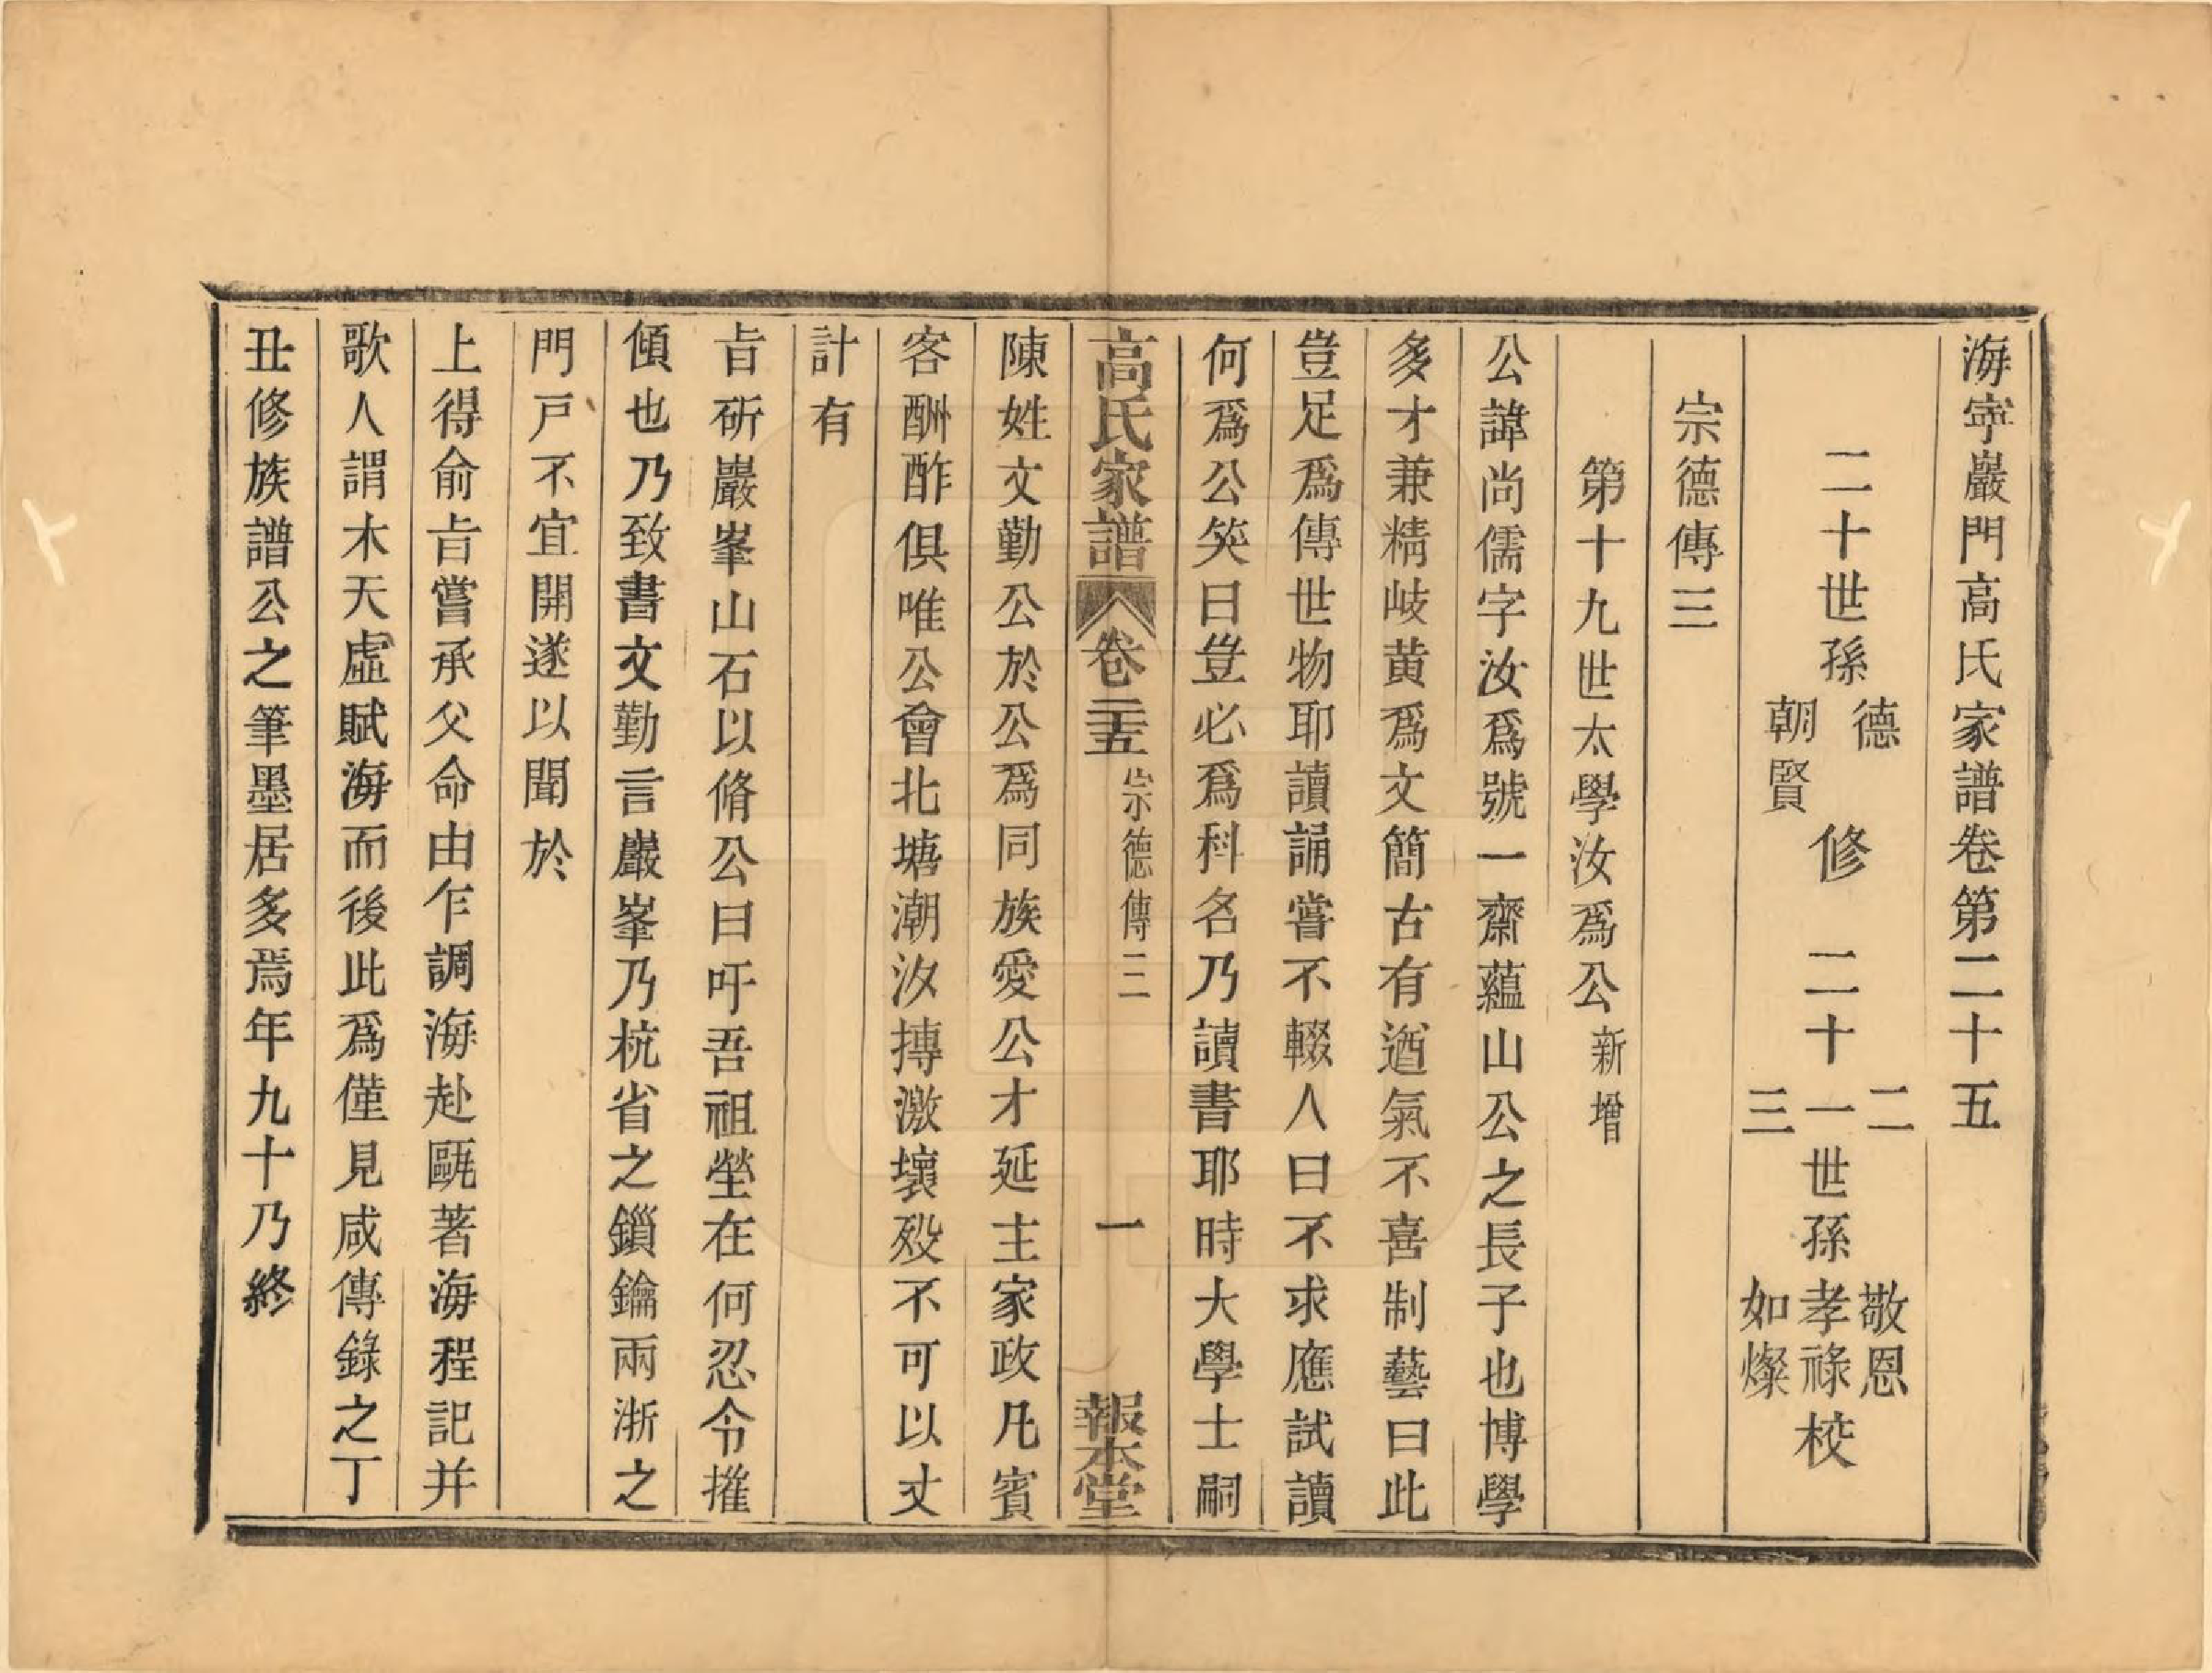 海寧巖門高氏家譜卷第二十五
二十世孫德朝賢修 二十二一三世孫敬恩孝祿如燦校
宗德傳三
第十九世太學汝爲公新增
公諱尚儒字汝爲號一齋蘊山公之長子也博學
多才兼精岐黄爲文簡古有遒氣不喜制藝曰此
豈足爲傳世物耶讀誦嘗不輟人曰不求應試讀
何爲公笑曰豈必爲科名乃讀書耶時大學士嗣
高氏家譜 卷二十五 宗德傳三 一 報本堂
陳姓文勤公於公爲同族愛公才延主家政凡賓
客酬酢俱唯公會北塘潮汐摶激壞殁不可以丈
計有
旨斫巖峯山石以脩公曰吁吾祖塋在何忍令摧
傾也乃致書文勤言巖峯乃杭省之鎖鑰兩浙之
門戸不宜開遂以聞於
上得俞旨嘗承父命由乍調海赴甌著海程記并
歌人謂木天虛賦海而後此爲僅見咸傳錄之丁
丑修族譜公之筆墨居多焉年九十乃終